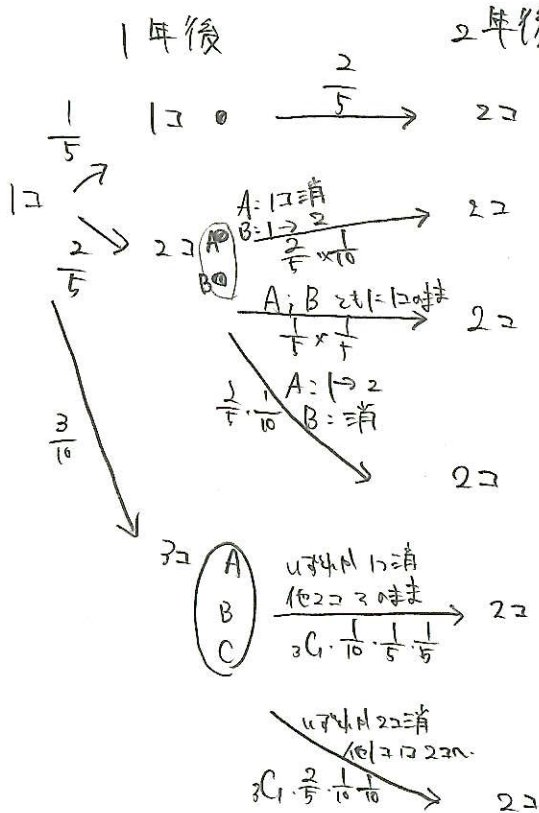 1年後 2年後
1/5 1コ 2/5 2コ
1コ
2/5 2コ A B
A:1コ消
B:1→2
2/5×1/10 2コ
A,Bともに1コのまま
1/5×1/5 2コ
2/5・1/10 A:1→2
B:消
2コ
3/10
3コ A B C
いずれか1コ消
他2コそのまま
3C1・1/10・1/5・1/5 2コ
いずれか2コ消
他1コは2コへ.
3C1・2/5・1/10・1/10 2コ